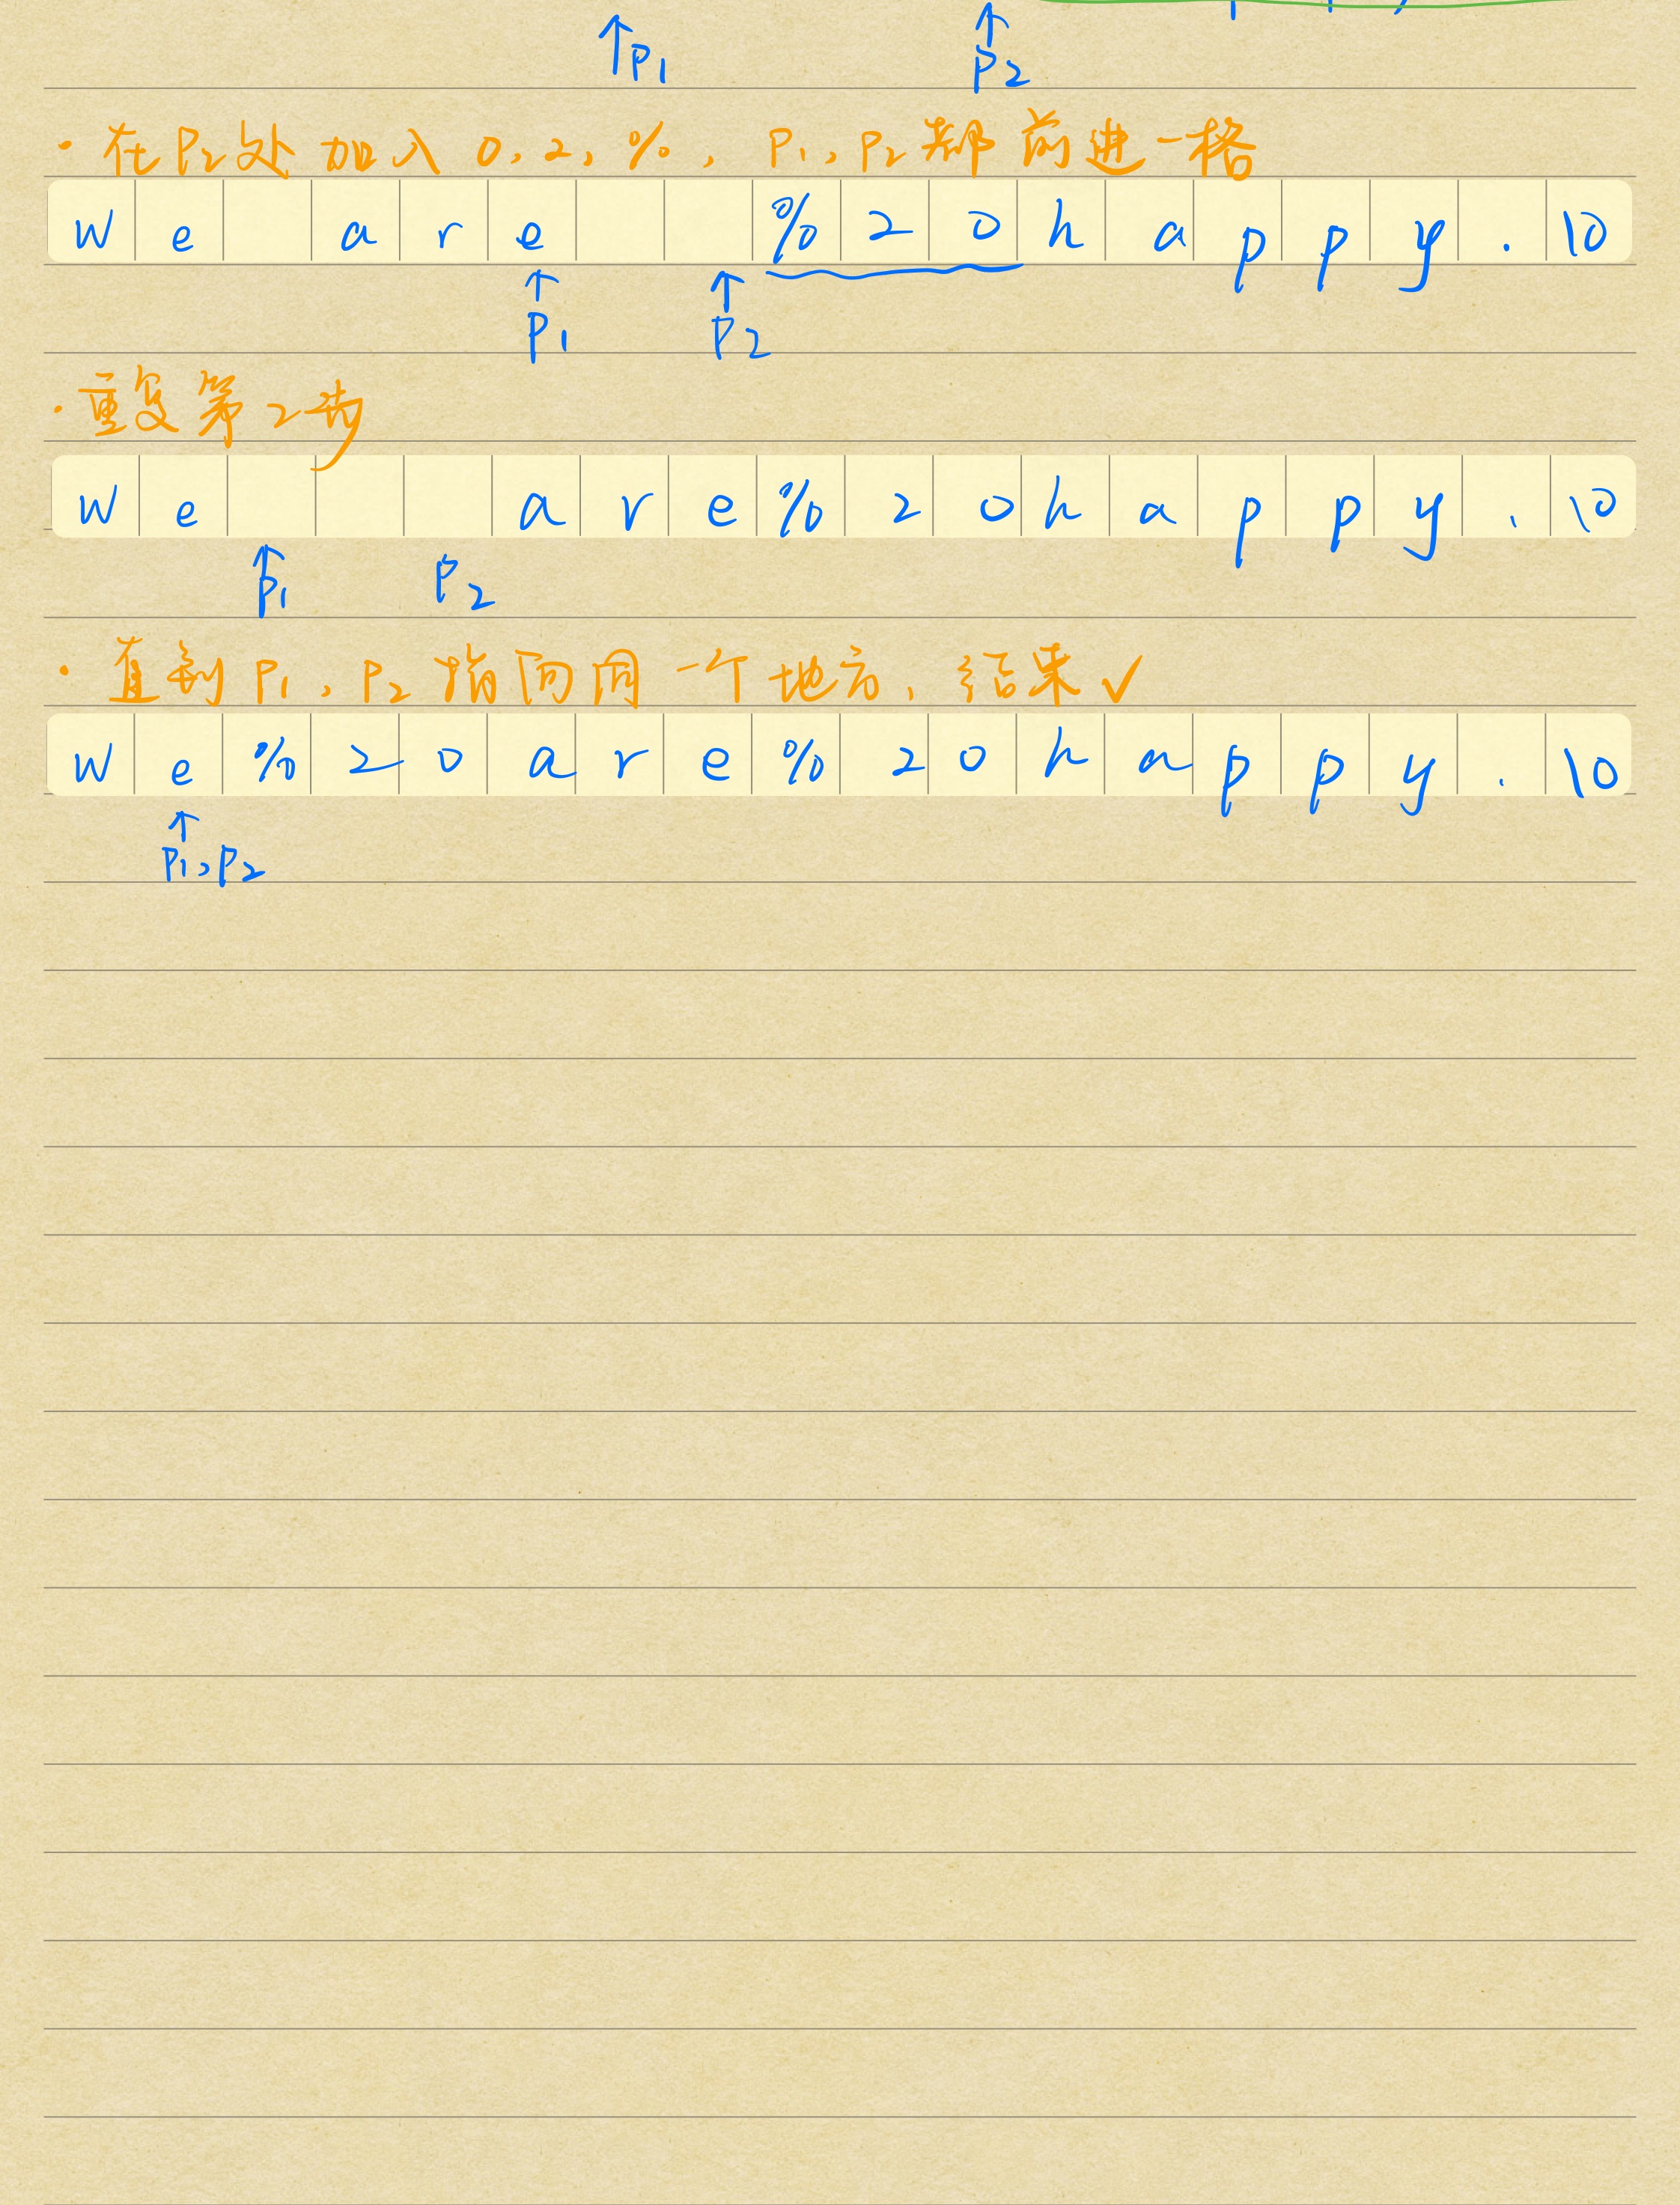 ↑P1 ↑P2
· 在P2处加入 0, 2, %, P1, P2都前进一格
W e a r e % 2 0 h a p p y . \0
↑P1 ↑P2
· 重复第2步
W e a r e % 2 0 h a p p y . \0
↑P1 P2
· 直到P1, P2指向同一个地方, 结束✓
W e % 2 0 a r e % 2 0 h a p p y . \0
↑P1, P2